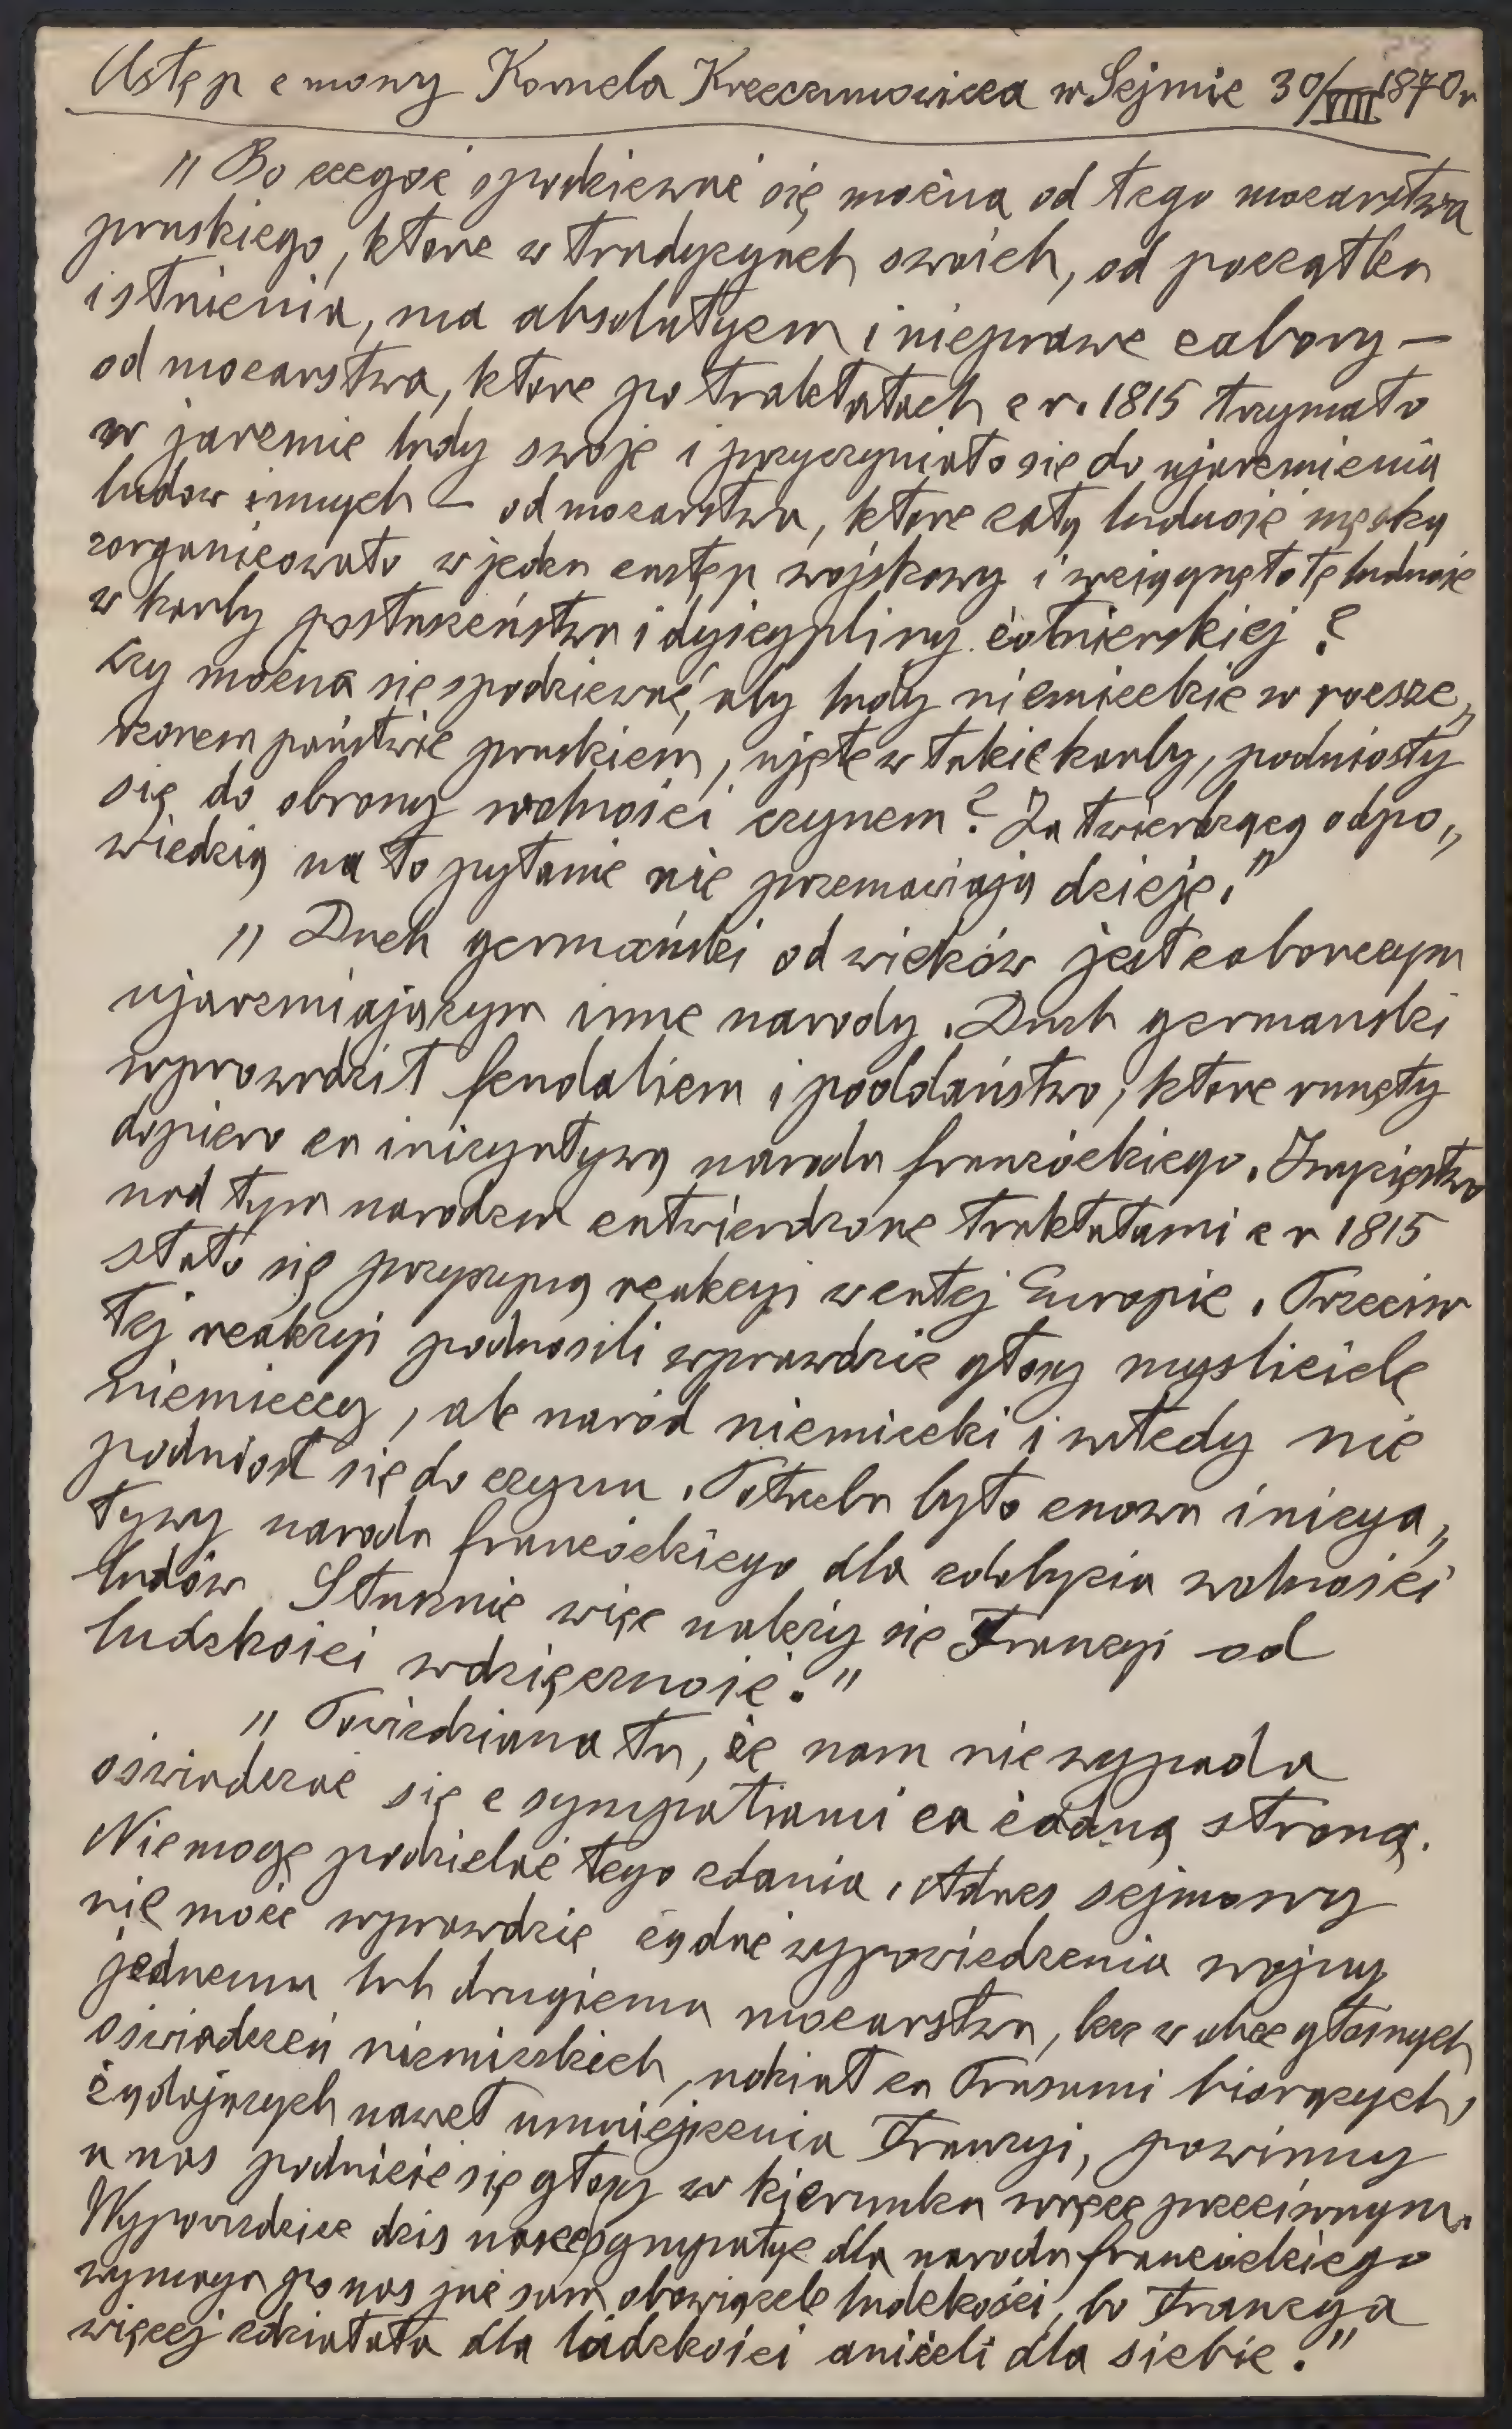 Ustęp z mowy Kornela Krzeczunowicza w Sejmie 30/VIII 1870 r
„Bo czegoż spodziewać się można od tego mocarstwa
pruskiego, które w tradycyach swoich, od początku
istnienia, ma absolutyzm i nieprawe zabory –
od mocarstwa, które po traktatach z r. 1815 trzymało
w jarzmie ludy swoje i przyczyniało się do ujarzmienia
ludów innych – od mocarstwa, które całą ludność męską
zorganizowało w jeden zastęp wojskowy i wciągnęło tę ludność
w karby posłuszeństwa i dyscypliny żołnierskiej?
Czy można się spodziewać, aby ludy niemieckie w rozsze„
rzonem państwie pruskiem, ujęte w takie karby, podniosły
się do obrony wolności czynem? Za twierdzącą odpo„
wiedzią na to pytanie nie przemawiają dzieje."
„Duch germański od wieków jest zaborczym
ujarzmiającym inne narody. Duch germański
wprowadził feudalizm i poddaństwo, które runęły
dopiero za inicyatywą narodu francuzkiego. Zwycięstwo
nad tym narodem zatwierdzone traktatami z r 1815
stało się przyczyną reakcyi w całej Europie. Przeciw
tej reakcyi podnosili wprawdzie głosy myśliciele
niemieccy, ale naród niemiecki i wtedy nie
podniósł się do czynu. Potrzeba było znowu inicya„
tywy narodu francuzkiego dla zdobycia wolności
ludów. Słusznie więc należy się Francyi od
ludzkości wdzięczność."
„Powiedziano tu, że nam nie wypada
oświadczać się z sympatiami za żadną stroną.
Nie mogę podzielać tego zdania. Adres sejmowy
nie może wprawdzie żądać wypowiedzenia wojny
jednemu lub drugiemu mocarstwu, lecz w obec głośnych
oświadczeń niemieckich, udział za Prusami biorących,
żądających nawet umniejszenia Francyi, powinny
u nas podnieść się głosy w kierunku wręcz przeciwnym.
Wypowiedzieć dziś nasze sympatye dla narodu francuzkiego
wymaga po nas już sam obowiązek ludzkości, bo Francya
więcej zdziałała dla ludzkości aniżeli dla siebie."